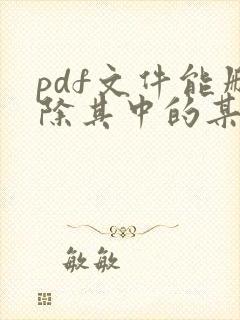 pdf文件能删
除其中的某
敏敏